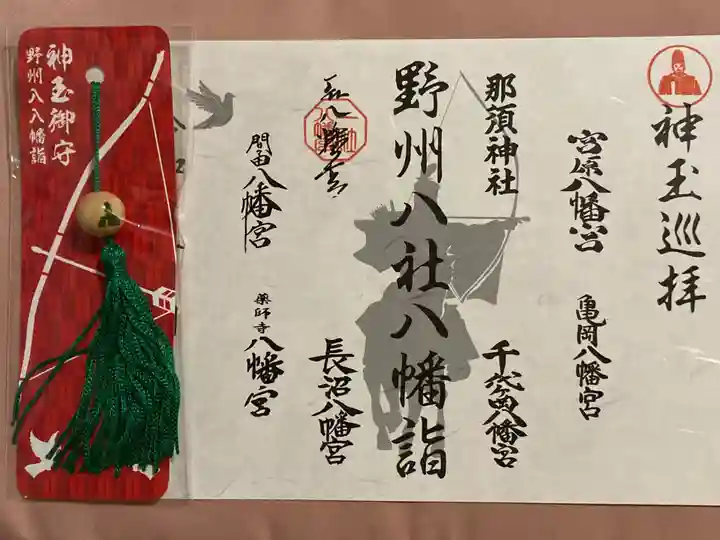 神玉巡拝
宮原八幡宮
亀岡八幡宮
那須神社
八幡宮
野州八社八幡詣
八幡宮
長沼八幡宮
間々田八幡宮
薬師寺八幡宮
神玉御守
野州八八幡詣